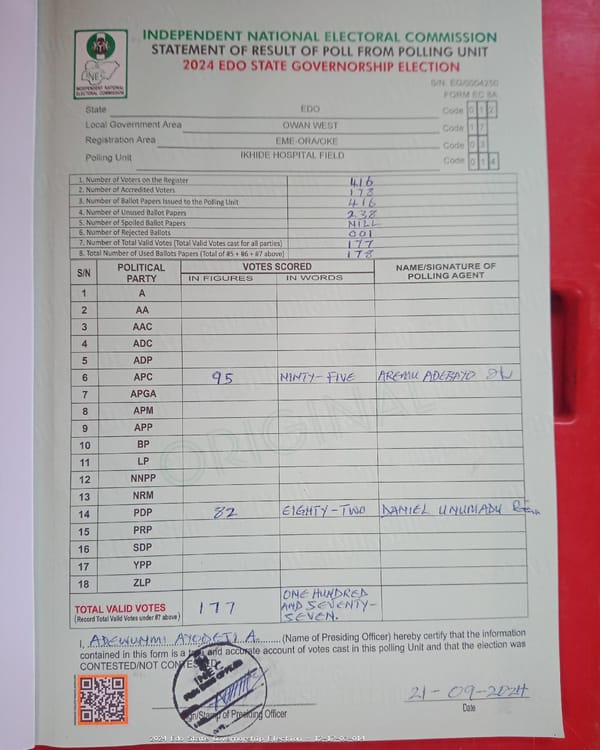 INDEPENDENT NATIONAL ELECTORAL COMMISSION
STATEMENT OF RESULT OF POLL FROM POLLING UNIT
2024 EDO STATE GOVERNORSHIP ELECTION
INEC
INDEPENDENT NATIONAL
ELECTORAL COMMISSION
S/N: EG/0004250
FORM EC 8A
State EDO Code 0 1 2
Local Government Area OWAN WEST Code 1 7
Registration Area EME-ORA/OKE Code 0 3
Polling Unit IKHIDE HOSPITAL FIELD Code 0 1 4
1. Number of Voters on the Register 416
2. Number of Accredited Voters 178
3. Number of Ballot Papers Issued to the Polling Unit 416
4. Number of Unused Ballot Papers 238
5. Number of Spoiled Ballot Papers NILL
6. Number of Rejected Ballots 001
7. Number of Total Valid Votes (Total Valid Votes cast for all parties) 177
8. Total Number of Used Ballots Papers (Total of #5 + #6 + #7 above) 178
S/N POLITICAL PARTY VOTES SCORED NAME/SIGNATURE OF POLLING AGENT
IN FIGURES IN WORDS
1 A
2 AA
3 AAC
4 ADC
5 ADP
6 APC 95 NINTY-FIVE AREMU ADEBAYO
7 APGA
8 APM
9 APP
10 BP
11 LP
12 NNPP
13 NRM
14 PDP 82 EIGHTY-TWO DANIEL UNUMADU
15 PRP
16 SDP
17 YPP
18 ZLP
ORIGINAL
TOTAL VALID VOTES 177 ONE HUNDRED AND SEVENTY-SEVEN.
(Record Total Valid Votes under #7 above)
I, ADEWUNMI AYODEJI A. (Name of Presiding Officer) hereby certify that the information
contained in this form is a true and accurate account of votes cast in this polling Unit and that the election was
CONTESTED/NOT CONTESTED
INEC
Sign/Stamp of Presiding Officer
21-09-2024
Date
2024 Edo State Governorship Election - 12-17-03-014